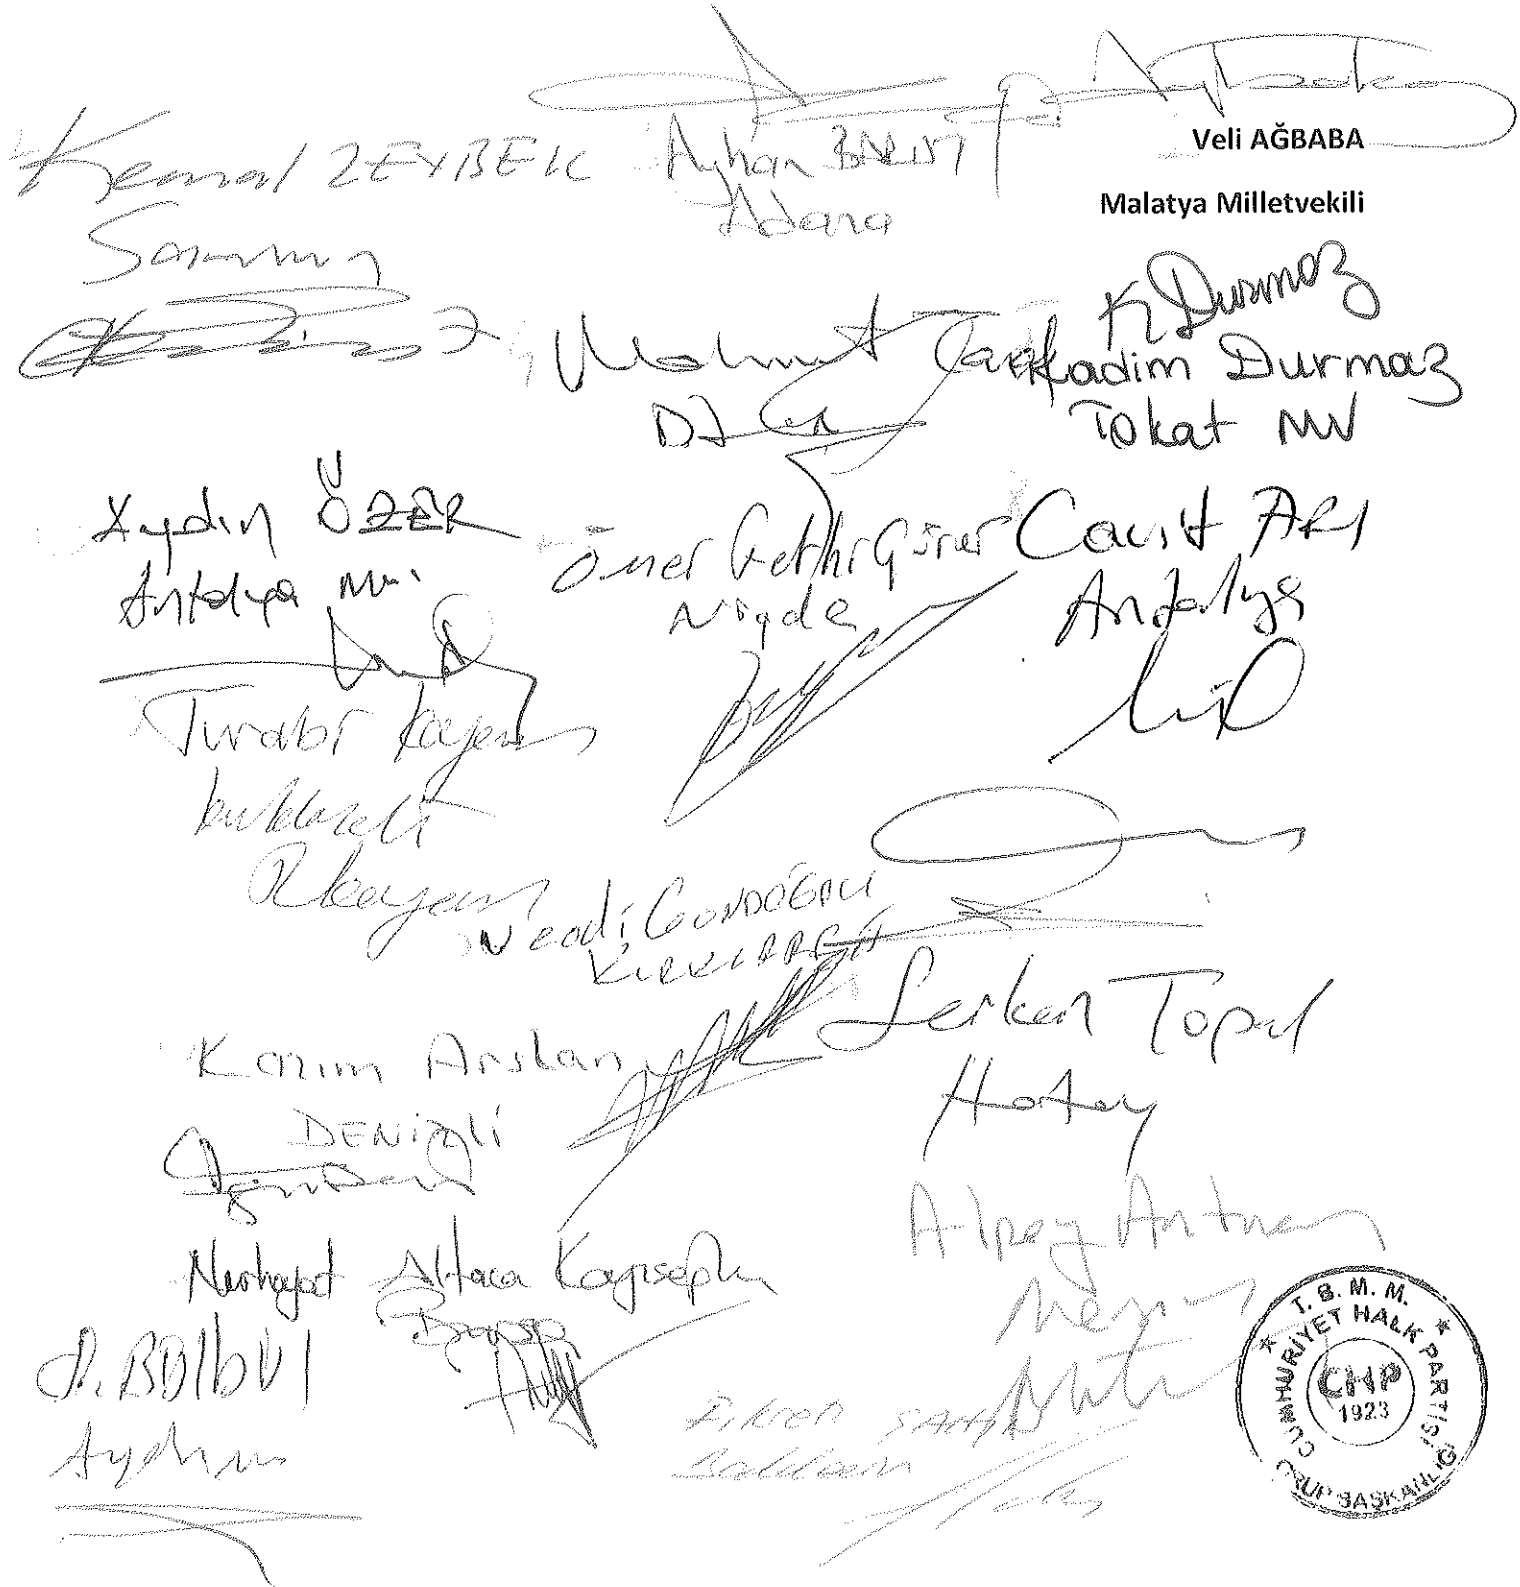 Veli AĞBABA
Malatya Milletvekili
Kemal ZEYBEK
Samsun
Ayhan BARUT
Adana
K Durmaz
Kadim Durmaz
Tokat MV
Mahmut Tanal
Aydın ÖZER
Antalya Mv.
Ömer Fethi Gürer
Niğde
Cavit ARI
Antalya
Turabi Kayan
Kırklareli
TKayan
Vecdi GÜNDOĞDU
KIRKLARELİ
Serkan Topal
Hatay
Kazım Arslan
DENİZLİ
Alpay Antmen
Mersin
Nurhayat Altaca Kayışoğlu
Bursa
S. BÜlbül
Aydın
Fikret ŞAHİN
Balıkesir
T. B. M. M.
CUMHURİYET HALK PARTİSİ
CHP
1923
GRUP BAŞKANLIĞI